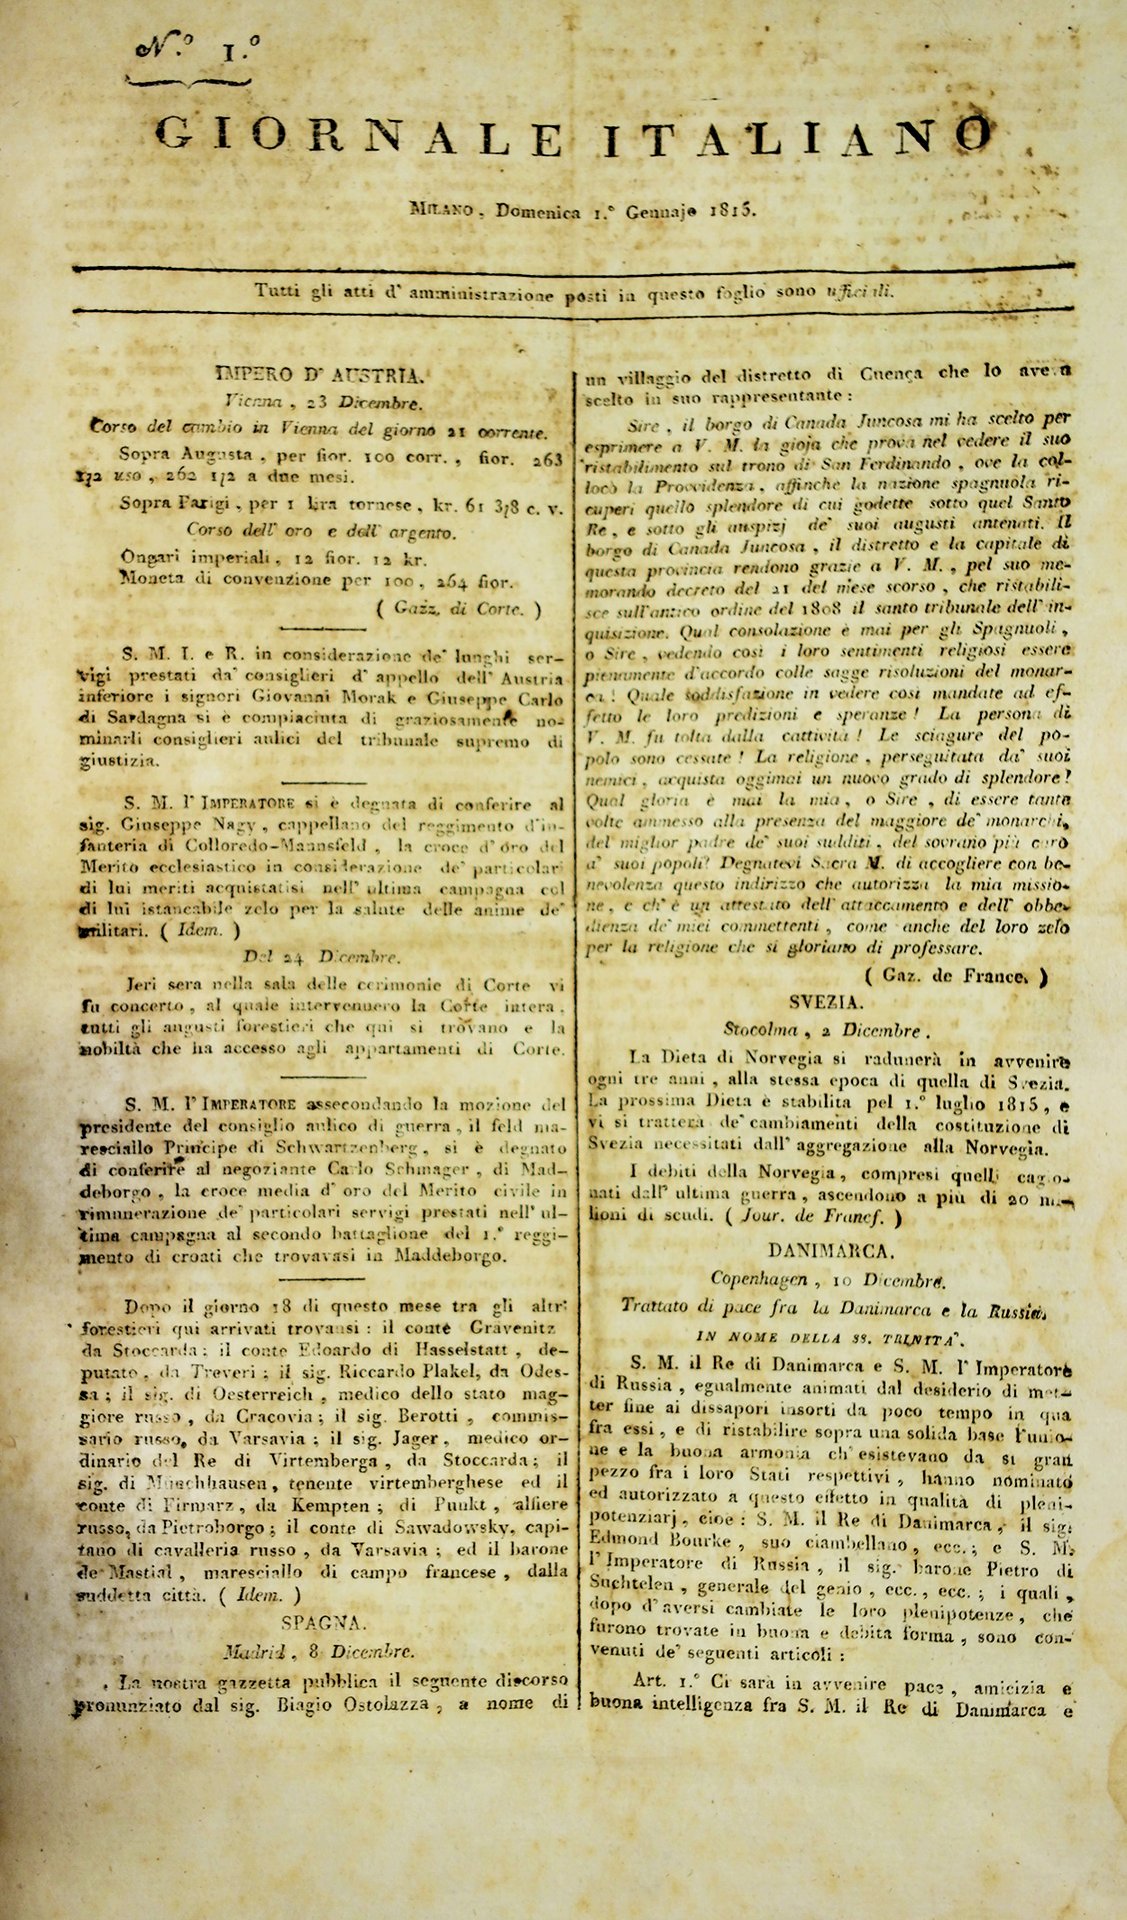 N.º 1.º
GIORNALE ITALIANO
MILANO, Domenica 1.º Gennajo 1815.
Tutti gli atti d' amministrazione posti in questo foglio sono ufficiali.
IMPERO D' AUSTRIA.
Vienna, 23 Dicembre.
Corso del cambio in Vienna del giorno 21 corrente.
Sopra Augusta, per fior. 100 corr., fior. 263
1/2 uso, 262 1/2 a due mesi.
Sopra Parigi, per 1 lira tornese, kr. 61 3/8 c. v.
Corso dell' oro e dell' argento.
Ongari imperiali, 12 fior. 12 kr.
Moneta di convenzione per 100, 264 fior.
( Gazz. di Corte. )
S. M. I. e R. in considerazione de' lunghi ser-
vigi prestati da' consiglieri d' appello dell' Austria
inferiore i signori Giovanni Morak e Giuseppe Carlo
di Sardagna si è compiaciuta di graziosamente no-
minarli consiglieri aulici del tribunale supremo di
giustizia.
S. M. l' IMPERATORE si è degnata di conferire al
sig. Giuseppe Nagy, cappellano del reggimento d'in-
fanteria di Colloredo-Mannsfeld, la croce d' oro del
Merito ecclesiastico in considerazione de' particolari
di lui meriti acquistatisi nell' ultima campagna col
di lui istancabile zelo per la salute delle anime de'
militari. ( Idem. )
Del 24 Dicembre.
Jeri sera nella sala delle cerimonie di Corte vi
fu concerto, al quale intervennero la Corte intera,
tutti gli augusti forestieri che qui si trovano e la
nobiltà che ha accesso agli appartamenti di Corte.
S. M. l' IMPERATORE assecondando la mozione del
presidente del consiglio aulico di guerra, il feld ma-
resciallo Principe di Schwartzenberg, si è degnato
di conferire al negoziante Carlo Schnager, di Mad-
deborgo, la croce media d' oro del Merito civile in
rimunerazione de' particolari servigi prestati nell' ul-
tima campagna al secondo battaglione del 1.º reggi-
mento di croati che trovavasi in Maddeborgo.
Dopo il giorno 18 di questo mese tra gli altri
forestieri qui arrivati trovansi: il conte Gravenitz
da Stoccarda; il conte Edoardo di Hasselstatt, de-
putato, da Treveri; il sig. Riccardo Plakel, da Odes-
sa; il sig. di Oesterreich, medico dello stato mag-
giore russo, da Cracovia; il sig. Berotti, commis-
sario russo, da Varsavia; il sig. Jager, medico or-
dinario del Re di Virtemberga, da Stoccarda; il
sig. di Münchhausen, tenente virtemberghese ed il
conte di Firmarz, da Kempten; di Punkt, alfiere
russo, da Pietroborgo; il conte di Sawadowsky, capi-
tano di cavalleria russo, da Varsavia; ed il barone
de Mastial, maresciallo di campo francese, dalla
suddetta città. ( Idem. )
SPAGNA.
Madrid, 8 Dicembre.
La nostra gazzetta pubblica il seguente discorso
pronunziato dal sig. Biagio Ostolazza, a nome di
un villaggio del distretto di Cuença che lo aveva
scelto in suo rappresentante:
Sire, il borgo di Canada Juncosa mi ha scelto per
esprimere a V. M. la gioja che prova nel vedere il suo
ristabilimento sul trono di San Ferdinando, ove la col-
locò la Provvidenza, affinche la nazione spagnuola ri-
cuperi quello splendore di cui godette sotto quel Santo
Re, e sotto gli auspizj de' suoi augusti antenati. Il
borgo di Canada Juncosa, il distretto e la capitale di
questa provincia rendono grazie a V. M., pel suo me-
morando decreto del 21 del mese scorso, che ristabili-
sce sull'antico ordine del 1808 il santo tribunale dell' in-
quisizione. Qual consolazione è mai per gli Spagnuoli,
o Sire, vedendo così i loro sentimenti religiosi essere
pienamente d'accordo colle sagge risoluzioni del monar-
ca! Quale soddisfazione in vedere così mandate ad ef-
fetto le loro predizioni e speranze! La persona di
V. M. fu tolta dalla cattività! Le sciagure del po-
polo sono cessate! La religione, perseguitata da' suoi
nemici, acquista oggimai un nuovo grado di splendore!
Qual gloria è mai la mia, o Sire, di essere tante
volte ammesso alla presenza del maggiore de' monarchi,
del miglior padre de' suoi sudditi, del sovrano più caro
a' suoi popoli! Degnatevi Sacra M. di accogliere con be-
nevolenza questo indirizzo che autorizza la mia missio-
ne, e ch' è un attestato dell' attaccamento e dell' obbe-
dienza de' miei committenti, come anche del loro zelo
per la religione che si gloriano di professare.
( Gaz. de France. )
SVEZIA.
Stocolma, 2 Dicembre.
La Dieta di Norvegia si radunerà in avvenire
ogni tre anni, alla stessa epoca di quella di Svezia.
La prossima Dieta è stabilita pel 1.º luglio 1815, e
vi si tratterà de' cambiamenti della costituzione di
Svezia necessitati dall' aggregazione alla Norvegia.
I debiti della Norvegia, compresi quelli cagio-
nati dall' ultima guerra, ascendono a più di 20 mi-
lioni di scudi. ( Jour. de Francf. )
DANIMARCA.
Copenhagen, 10 Dicembre.
Trattato di pace fra la Danimarca e la Russia.
IN NOME DELLA SS. TRINITA'.
S. M. il Re di Danimarca e S. M. l' Imperatore
di Russia, egualmente animati dal desiderio di met-
ter fine ai dissapori insorti da poco tempo in qua
fra essi, e di ristabilire sopra una solida base l'unio-
ne e la buona armonia ch' esistevano da sì gran
pezzo fra i loro Stati respettivi, hanno nominato
ed autorizzato a questo effetto in qualità di pleni-
potenziarj, cioè: S. M. il Re di Danimarca, il sig.
Edmond Bourke, suo ciambellano, ecc.; e S. M.
l' Imperatore di Russia, il sig. barone Pietro di
Suchtelen, generale del genio, ecc., ecc.; i quali,
dopo d' aversi cambiate le loro plenipotenze, che
furono trovate in buona e debita forma, sono con-
venuti de' seguenti articoli:
Art. 1.º Ci sarà in avvenire pace, amicizia e
buona intelligenza fra S. M. il Re di Danimarca e